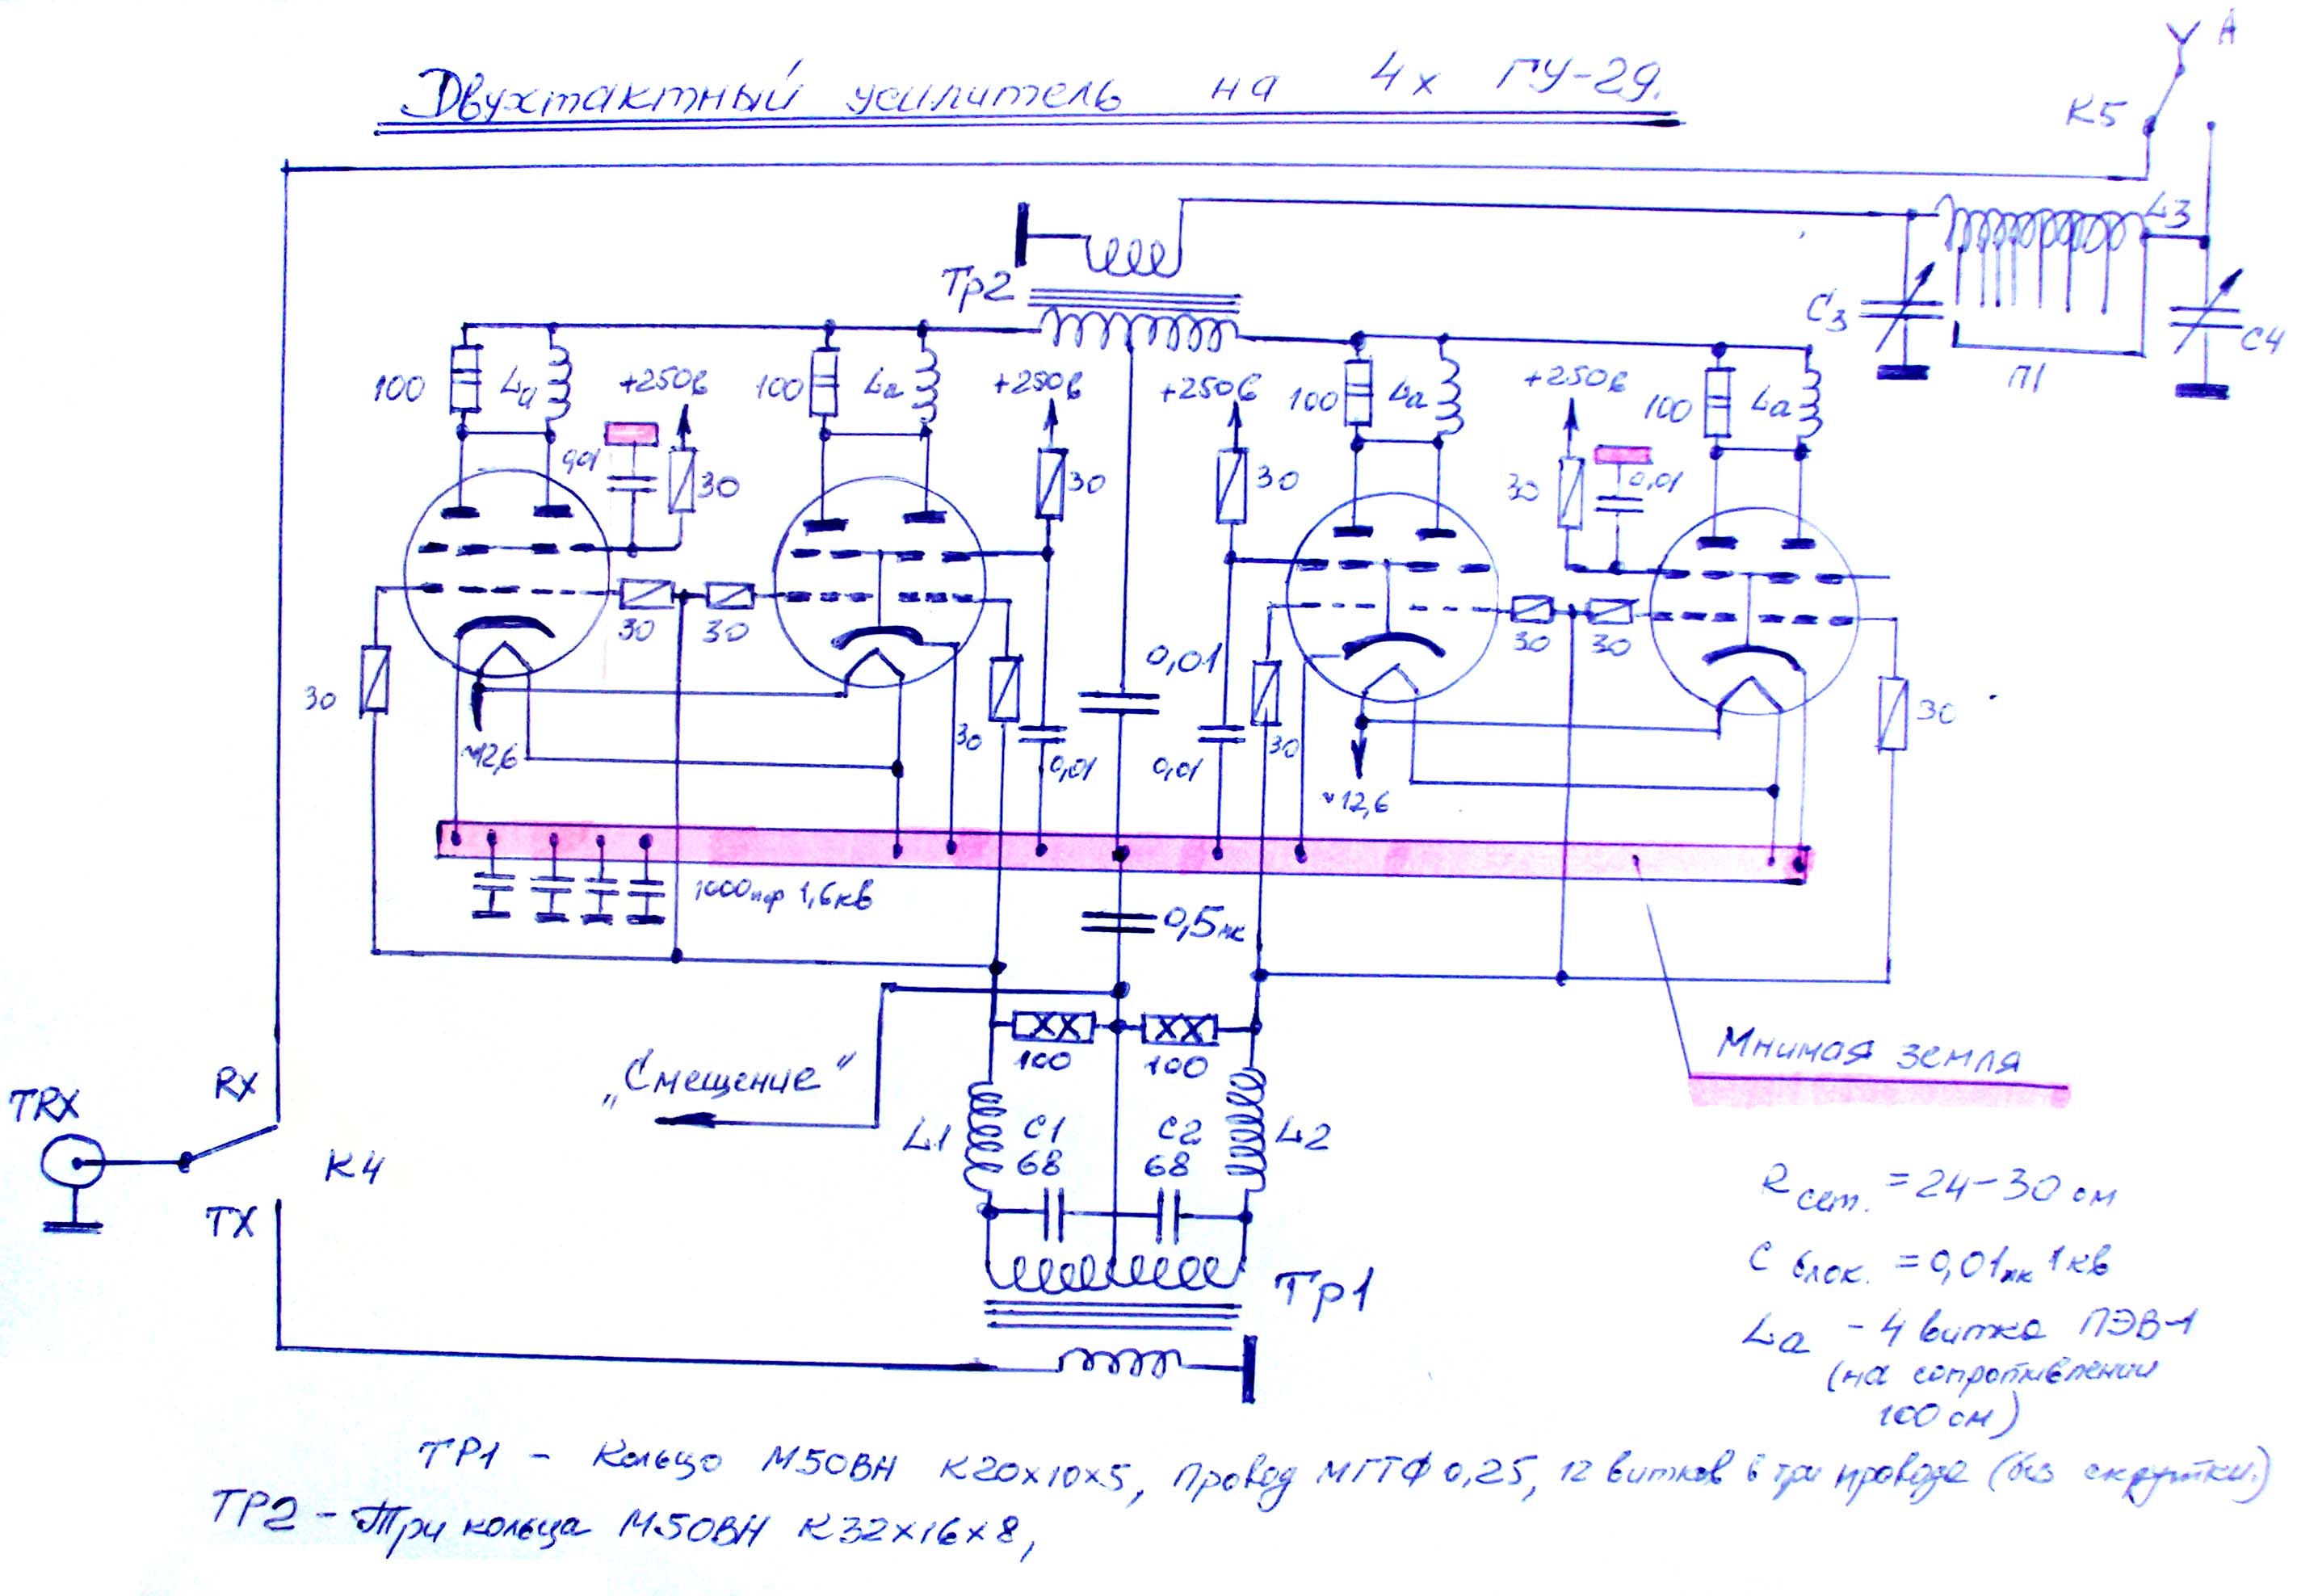 Двухтактный усилитель на 4х ГУ-29.
A
K5
L3
Тр2
C3
C4
П1
100
La
+250в
100
La
+250в
+250в
100
La
+250в
100
La
0,01
30
30
30
30
0,01
30
30
30
30
30
30
30
0,01
30
30
~12,6
0,01
0,01
~12,6
1000пф 1,6кв
0,5мк
„Смещение“
100
100
Мнимая земля
RX
TRX
K4
TX
L1
C1
68
C2
68
L2
Тр1
Rсет. = 24-30 ом
C блок. = 0,01мк 1кв
La - 4 витка ПЭВ-1
(на сопротивлении
100 ом)
ТР1 - Кольцо М50ВН К20х10х5, провод МГТФ 0,25, 12 витков в три провода (без скрутки.)
ТР2 - Три кольца М50ВН К32х16х8,